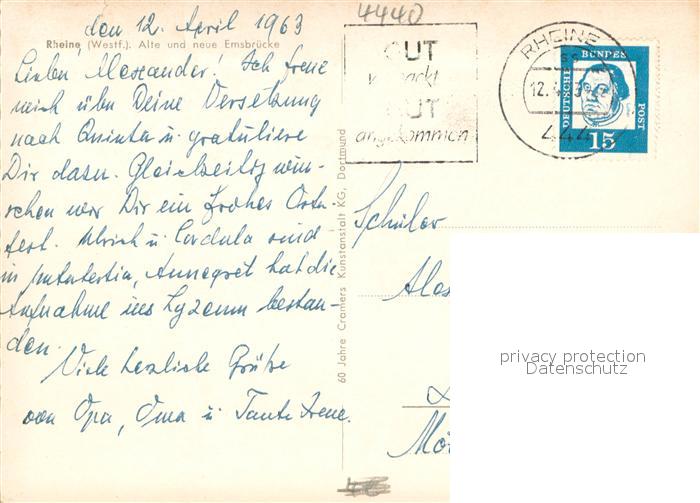 den 12. April 1963
Rheine (Westf.). Alte und neue Emsbrücke
Lieber Alexander! Ich freue
mich über Deine Versetzung
nach Quinta u. gratuliere
Dir dazu. Gleichzeitig wün-
schen wir Dir ein frohes Oster-
fest. Ulrich u. Cordula sind
in Untertertia, Annegret hat die
Aufnahme ins Lyzeum bestan-
den.
Viele herzliche Grüße
von Opa, Oma u Tante Irene.
60 Jahre Cramers Kunstanstalt KG, Dortmund
4440
GUT
verpackt
GUT
angekommen
RHEINE
12.4.63
444
DEUTSCHE
BUNDES
POST
15
Schüler
Ale
Mö
privacy protection
Datenschutz